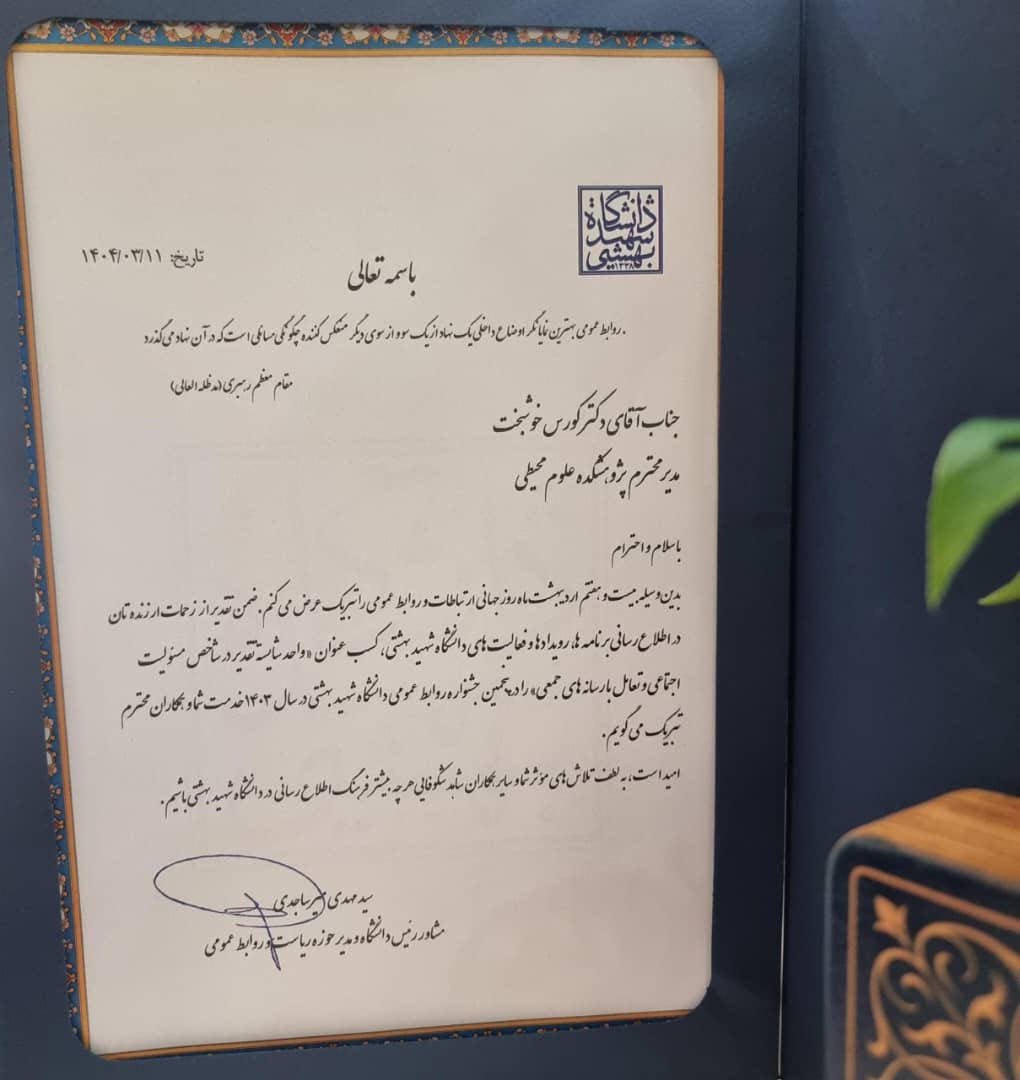 دانشگاه
شهید
بهشتی
۱۳۳۸
تاریخ: ۱۴۰۴/۰۳/۱۱
باسمه تعالی
روابط عمومی بهترین نمایانگر اوضاع داخلی یک نهاد از یک سو و از سوی دیگر منعکس کننده چگونگی مسائلی است که در آن نهاد می گذرد.
مقام معظم رهبری (مدظله العالی)
جناب آقای دکتر کورس خوشبخت
مدیر محترم پژوهشکده علوم محیطی
با سلام و احترام
بدین وسیله بیست و هفتم اردیبهشت ماه روز جهانی ارتباطات و روابط عمومی را تبریک عرض می کنم. ضمن تقدیر از زحمات ارزنده تان
در اطلاع رسانی برنامه ها، رویدادها و فعالیت های دانشگاه شهید بهشتی، کسب عنوان «واحد شایسته تقدیر در شاخص مسئولیت
اجتماعی و تعامل با رسانه های جمعی» را در پنجمین جشنواره روابط عمومی دانشگاه شهید بهشتی در سال ۱۴۰۳ خدمت شما و همکاران محترم
تبریک می گویم.
امید است، به لطف تلاش های مؤثر شما و سایر همکاران شاهد شکوفایی هر چه بیشتر فرهنگ اطلاع رسانی در دانشگاه شهید بهشتی باشیم.
سید مهدی میرساجدی
مشاور رئیس دانشگاه و مدیر حوزه ریاست و روابط عمومی